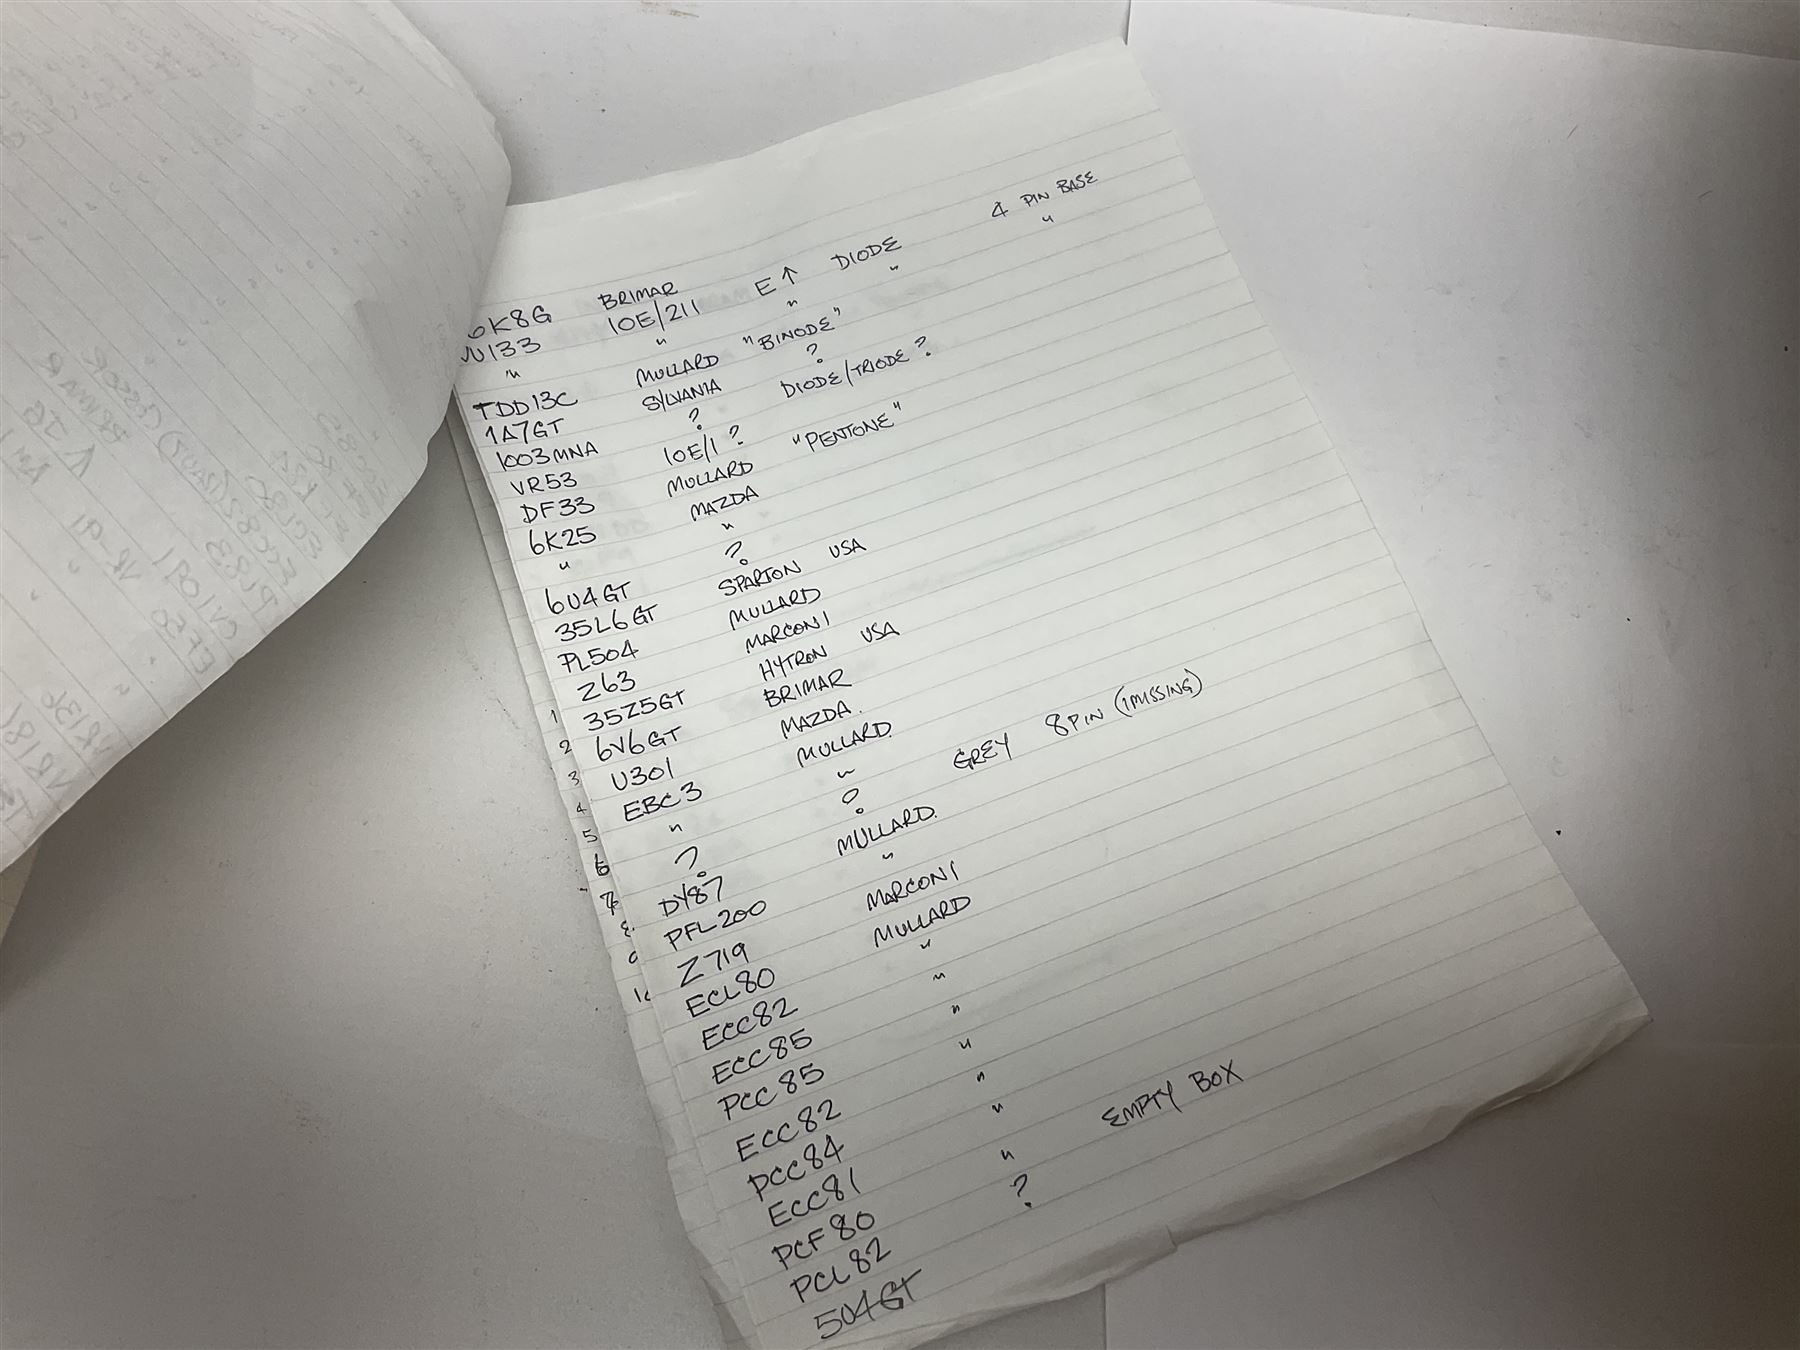 6K8G BRIMAR
VU133 10E/211 E↑ DIODE 4 PIN BASE
" " " " "
TDD13C MULLARD "BINODE"
1A7GT SYLVANIA ?
1003MNA ? DIODE/TRIODE?
VR53 10E/1?
DF33 MULLARD "PENTONE"
6K25 MAZDA
" "
6U4GT ?
35L6GT SPARTON USA
PL504 MULLARD
Z63 MARCONI
35Z5GT HYTRON USA
6V6GT BRIMAR
U301 MAZDA.
EBC3 MULLARD.
" "
? ? GREY 8 PIN (1 MISSING)
DY87 MULLARD.
PFL200 "
Z719 MARCONI
ECL80 MULLARD
ECC82 "
ECC85 "
PCC85 "
ECC82 "
PCC84 "
ECC81 "
PCF80 "
PCL82 "
504GT ? EMPTY BOX
1
2
3
4
5
6
7